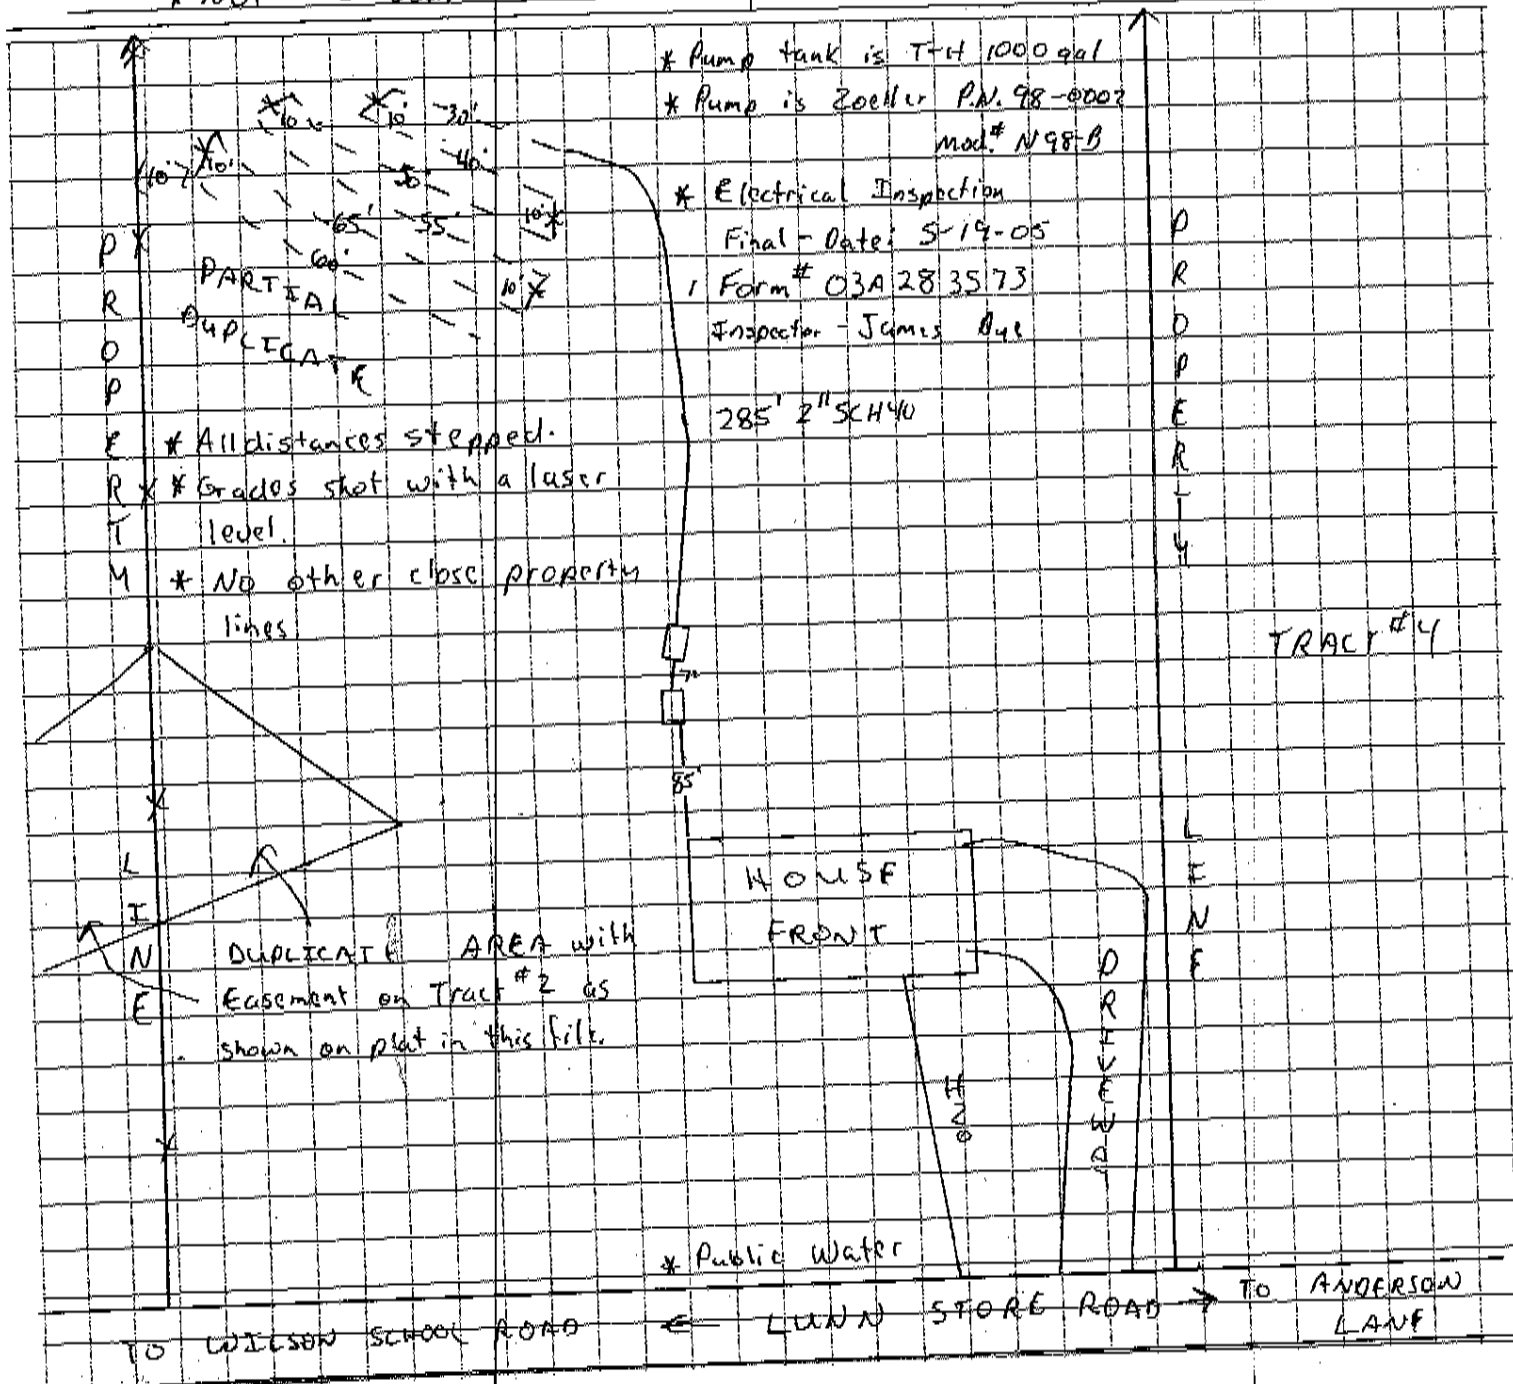 * Pump tank is T-H 1000 gal
* Pump is Zoeller P.N. 98-0002
Mod.# N98-B
* Electrical Inspection
Final - Date: 5-19-05
Form# 03A 283573
Inspector - James
285' 2" SCH 40
10' 10' 30'
10' 10' 40'
50'
65' 55' 10'
60'
10'
PARTIAL
DUPLICATE
* All distances stepped.
* Grades shot with a laser
level.
* No other close property
lines
PROPERTY
LINE
PROPERTY
LINE
TRACT #4
7'
85'
HOUSE
FRONT
DUPLICATE AREA with
Easement on Tract #2 as
shown on plat in this file.
H2O
DRIVEWA
* Public Water
TO WILSON SCHOOL ROAD ← LUNN STORE ROAD → TO ANDERSON
LANE